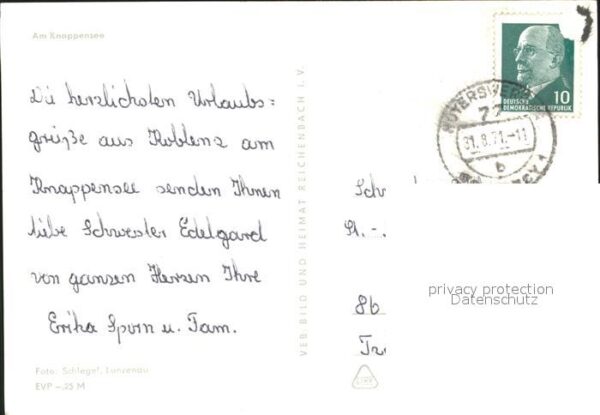 Am Knappensee
Die herzlichsten Urlaubs=
grüße aus Koblenz am
Knappensee senden Ihnen
liebe Schwester Edelgard
von ganzen Herzen Ihre
Erika u. Fam.
Foto: Schlegel, Lunzenau
EVP –.25 M
VEB BILD UND HEIMAT REICHENBACH I. V.
DEUTSCHE
DEMOKRATISCHE REPUBLIK
10
HOYERSWERDA
77
31.8.71.-11
b
Schw
St. -
86
privacy protection
Datenschutz